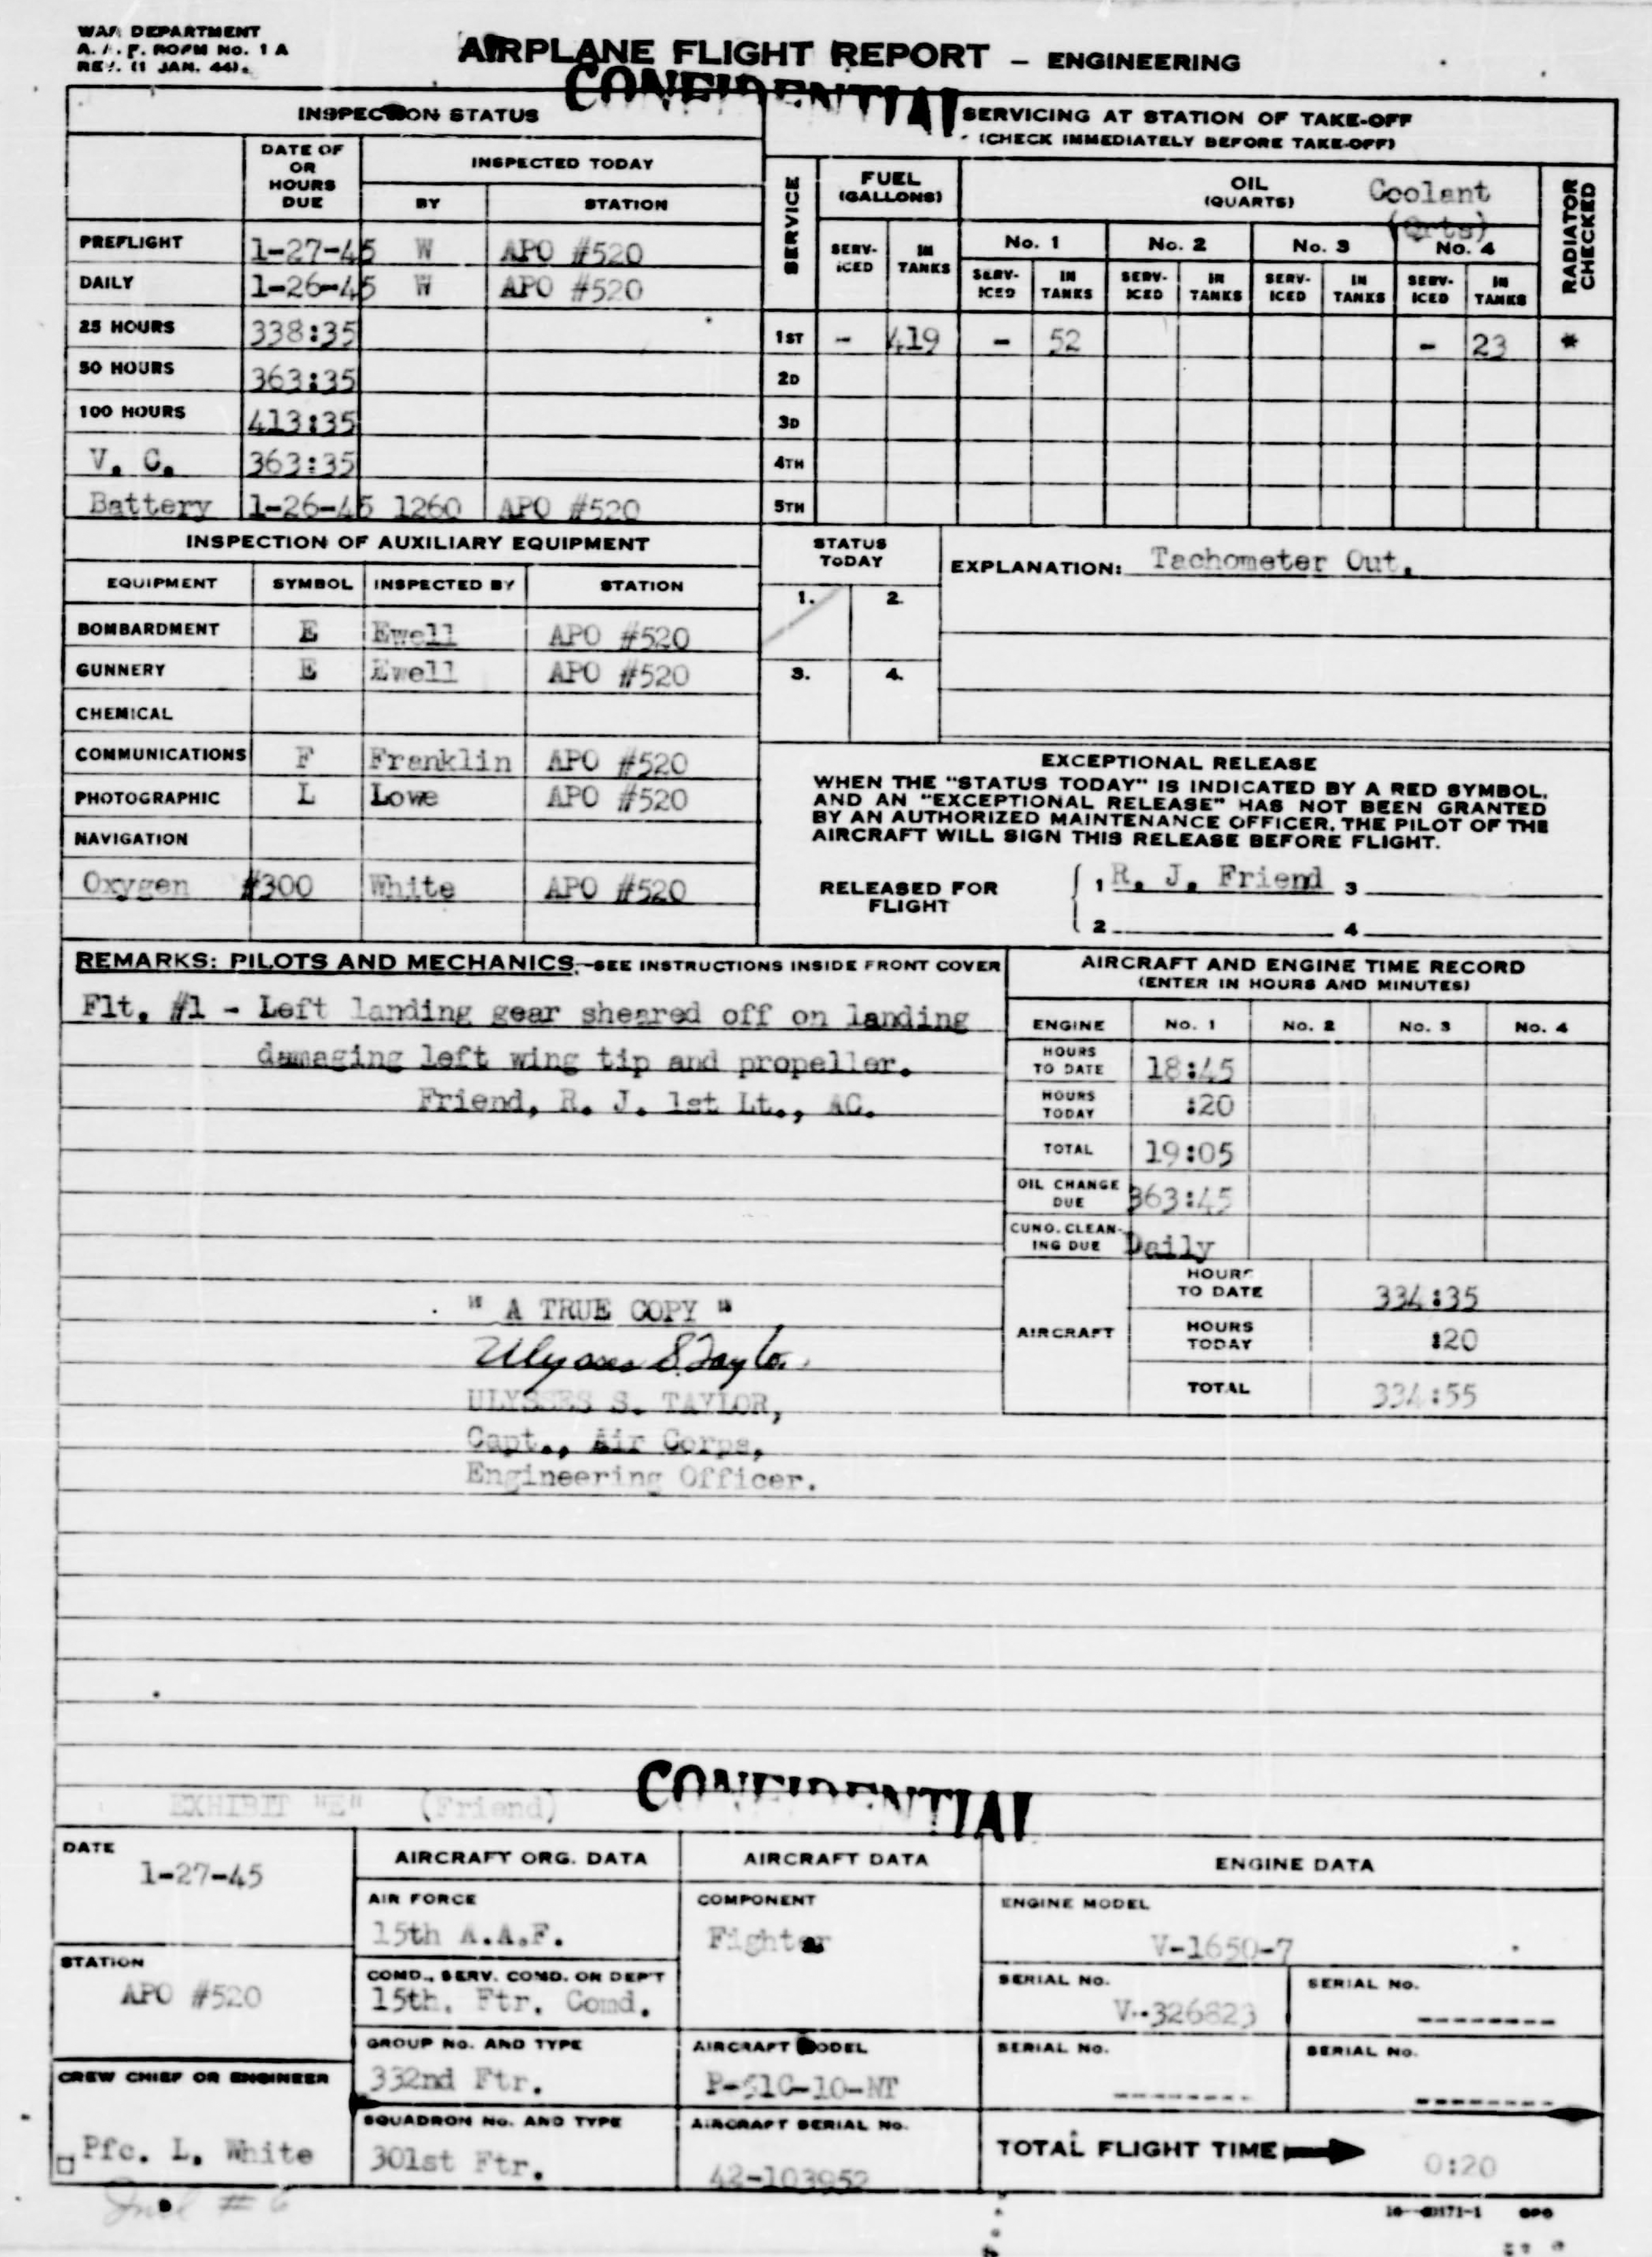 WAR DEPARTMENT
A. A. F. FORM No. 1 A
REV. (1 JAN. 44).
AIRPLANE FLIGHT REPORT – ENGINEERING
CONFIDENTIAL
INSPECTION STATUS
DATE OF OR HOURS DUE
INSPECTED TODAY
BY STATION
PREFLIGHT 1-27-45 W APO #520
DAILY 1-26-45 W APO #520
25 HOURS 338:35
50 HOURS 363:35
100 HOURS 413:35
V. C. 363:35
Battery 1-26-45 1260 APO #520
SERVICING AT STATION OF TAKE-OFF
(CHECK IMMEDIATELY BEFORE TAKE-OFF)
SERVICE
FUEL (GALLONS)
OIL (QUARTS)
Coolant (Qrts)
RADIATOR CHECKED
No. 1 No. 2 No. 3 No. 4
SERV-ICED IN TANKS SERV-ICED IN TANKS SERV-ICED IN TANKS SERV-ICED IN TANKS SERV-ICED IN TANKS
1ST - 419 - 52 - 23 *
2D
3D
4TH
5TH
INSPECTION OF AUXILIARY EQUIPMENT
EQUIPMENT SYMBOL INSPECTED BY STATION
BOMBARDMENT E Ewell APO #520
GUNNERY E Ewell APO #520
CHEMICAL
COMMUNICATIONS F Franklin APO #520
PHOTOGRAPHIC L Lowe APO #520
NAVIGATION
Oxygen #300 White APO #520
STATUS TODAY
1. / 2.
3. 4.
EXPLANATION: Tachometer Out.
EXCEPTIONAL RELEASE
WHEN THE "STATUS TODAY" IS INDICATED BY A RED SYMBOL,
AND AN "EXCEPTIONAL RELEASE" HAS NOT BEEN GRANTED
BY AN AUTHORIZED MAINTENANCE OFFICER, THE PILOT OF THE
AIRCRAFT WILL SIGN THIS RELEASE BEFORE FLIGHT.
RELEASED FOR FLIGHT
1 R. J. Friend 3
2 4
REMARKS: PILOTS AND MECHANICS.—SEE INSTRUCTIONS INSIDE FRONT COVER
Flt. #1 - Left landing gear sheared off on landing
damaging left wing tip and propeller.
Friend, R. J. 1st Lt., AC.
AIRCRAFT AND ENGINE TIME RECORD
(ENTER IN HOURS AND MINUTES)
ENGINE No. 1 No. 2 No. 3 No. 4
HOURS TO DATE 18:45
HOURS TODAY :20
TOTAL 19:05
OIL CHANGE DUE 363:45
CUNO. CLEAN-ING DUE Daily
AIRCRAFT
HOURS TO DATE 334:35
HOURS TODAY :20
TOTAL 334:55
" A TRUE COPY "
Ulysses S. Taylor
ULYSSES S. TAYLOR,
Capt., Air Corps,
Engineering Officer.
CONFIDENTIAL
EXHIBIT "E" (Friend)
DATE
1-27-45
STATION
APO #520
CREW CHIEF OR ENGINEER
Pfc. L. White
AIRCRAFT ORG. DATA
AIR FORCE
15th A.A.F.
COMD., SERV. COMD. OR DEP'T
15th. Ftr. Comd.
GROUP No. AND TYPE
332nd Ftr.
SQUADRON No. AND TYPE
301st Ftr.
AIRCRAFT DATA
COMPONENT
Fighter
AIRCRAFT MODEL
P-51C-10-NT
AIRCRAFT SERIAL No.
42-103952
ENGINE DATA
ENGINE MODEL
V-1650-7
SERIAL No. SERIAL No.
V-326823 --------
SERIAL No. SERIAL No.
-------- --------
TOTAL FLIGHT TIME 0:20
Incl # 6
GPO